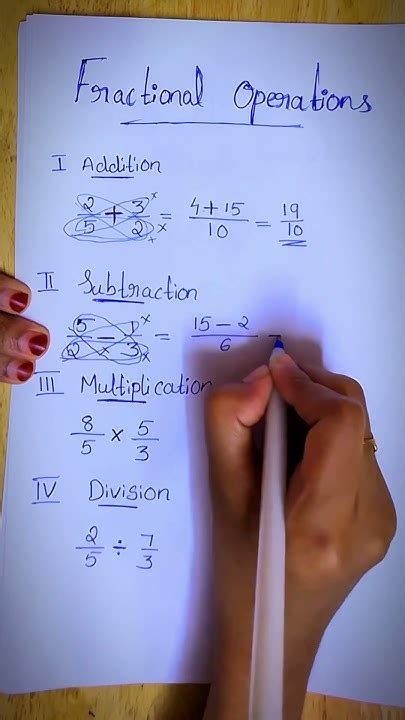 Fractional Operations
I Addition
2/5 + 3/2 = 4+15/10 = 19/10
II Subtraction
5/2 - 1/3 = 15-2/6 =
III Multiplication
8/5 × 5/3
IV Division
2/5 ÷ 7/3